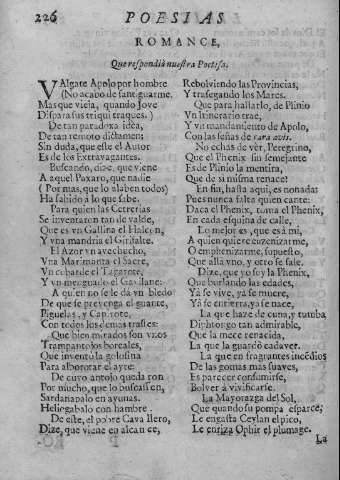 226 POESIAS
ROMANCE,
Que respondiò nuestra Poetisa.
VAlgate Apolo por hombre
(No acabo de santiguarme,
Mas que vieja, quando Jove
Dispara sus triquitraques.)
De tan paradoxa idéa,
De tan remoto dictamen;
Sin duda, que este el Autor
Es de los Extravagantes.
Buscando, dize, que viene
A aquel Paxaro, que nadie
(Por mas, que lo alaben todos)
Ha sabido à lo que sabe.
Para quien las Cetrerias
Se inventaron tan de valde,
Que es vn Gallina el Halcon,
Y vna mandria el Girifalte.
El Azor vn avechucho,
Vna Marimanta el Sacre,
Vn cobarde el Tagarote,
Y vn menguado el Gavilane:
A quien no se le dà vn bledo
De que se prevenga el guante,
Piguelas, y Capirote,
Con todos los demas trastes:
Que bien mirados son vnos
Trampantojos boreales,
Que inventò la golosina
Para alborotar el ayre:
De cuyo antojo queda ron
Por mucho, que lo buscassen,
Sardanapalo en ayunas,
Heliogabalo con hambre.
De este, el pobre Cavallero,
Dize, que viene en alcance,
Rebolviendo las Provincias,
Y trasegando los Mares.
Que para hallarlo, de Plinio
Vn itinerario trae,
Y vn mandamiento de Apolo,
Con las señas de rara avis.
No echas de vèr, Peregrino,
Que el Phenix sin semejante
Es de Plinio la mentira,
Que de sí misma renace?
En fin, hasta aquí, es nonada:
Pues nunca falta quien cante:
Daca el Phenix, toma el Phenix,
En cada esquina de calle,
Lo mejor es, que es à mí,
A quien quiere encenizarme,
O emphenizarme, supuesto,
Que allà vno, y otro se sale.
Dize, que yo soy la Phenix,
Que burlando las edades,
Yà se vive, yà se muere,
Yà se entierra, ya se nace.
La que haze de cuna, y tumba
Diphtongo tan admirable,
Que la mece renacida,
La que la guardò cadaver.
La que en fragrantes incēdios
De las gomas mas suaves,
Es parecer consumirse,
Bolver à vivificarse.
La Mayorazga del Sol,
Que quando su pompa esparce,
Le engasta Ceylan el pico,
Le enriza Ophir el plumage.
La